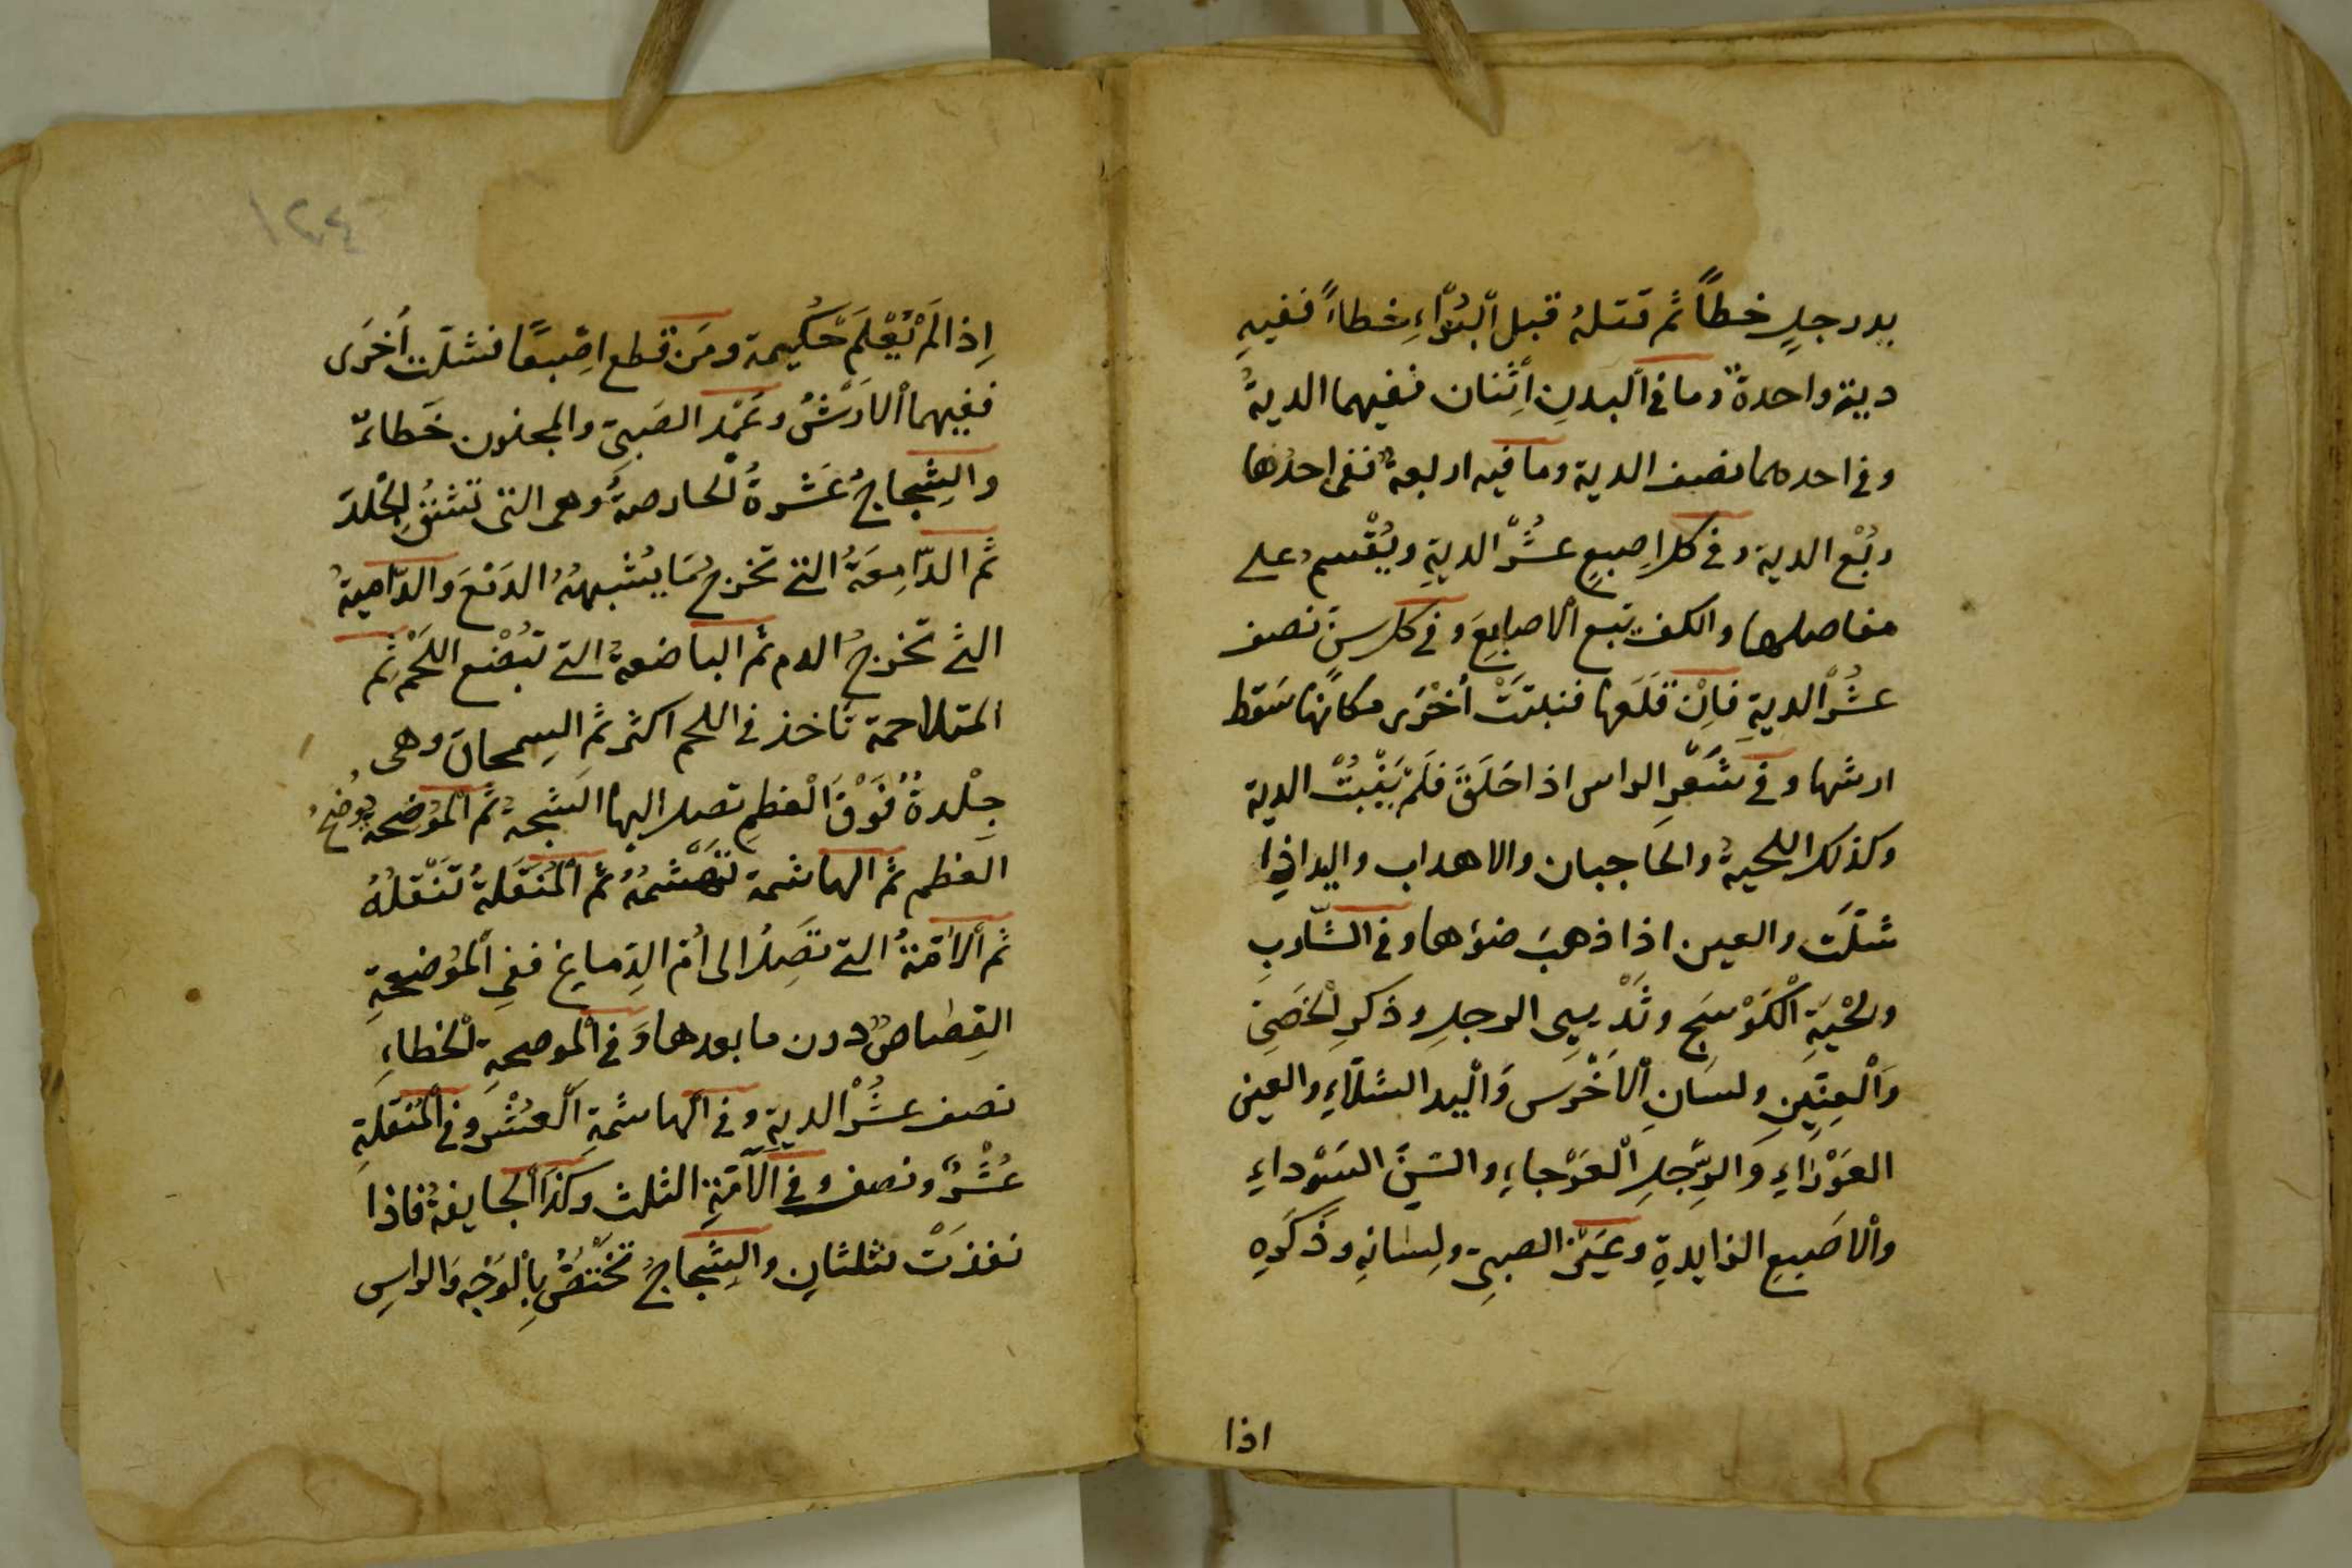 يدرجلٍ خطأً ثم قتلهُ قبل الْبُرْاءِ خطاءً ففيهِ
دية واحدةٌ وما في البدنِ اِثْنان ففيهما الديةُ
وفي احدهما نصف الدية وما فيه اربعةٌ ففى احدُها
ربُعْ الدية وفي كل اِصبعٍ عشُرْ الديةِ ويُقْسمُ على
مفاصلها والكف تبع الاصابِعَ وفي كل سنٍ نصف
عشُرْ الديةِ فاِنْ قلَعَها فنبتَتْ اُخْرَى مكانَها سَقط
ارشها وفي شَعْرِ الراس اذا حَلَقَ فلَمْ يَنْبُتْ الدية
وكذلك اللحيةُ والحاجبان والاهداب واليد اذا
شلّت والعين اذا ذهبَ ضوٴها وفي الشّاربِ
ولحْيَةِ الْكَوْسَجِ وثَدْيِى الرجلِ وذكرِ الْخَصِىِّ
وَالْعِنّينِ ولسَانِ الْاَخْرَس وَالْيد الشلّاءِ والعين
العَوْرَاءِ وَالرِّجلِ الْعَرْجاءِ والسّنِّ السَّوْداءِ
والْاصَبِعِ الزايدةِ وعَيْنِ الصبىِّ ولِسٰانِهِ وذَكَرِهِ
اذا
١٢٤
اِذا لَمْ يُعْلَمَ حُكيمة ومَن قطع اصِبعًا فشلّت اُخرَى
ففيهما الْاَرْشُ وعَمْد الصَبىّ والمجنون خَطاءٌ
والشِّجاجُ عَشْرةُ الْحارصةُ وهى التى تشُقُّ الِجْلدَ
ثَم الدّامِعَةُ التى تخرجُ مَا يُشْبههُ الدَمْعَ وَالدّاميةُ
التى تخرجُ الدم ثم الباضعةُ التى تبُضْع اللحْمَ ثم
المتلاحمة تاخذ في اللحم اكثر ثم السِمحاق وهى
جِلْدةُ فَوْقَ الْعظمِ تصل اليها الشجةُ ثم الْموُضحة تُوضحُ
العظم ثم الهاشمة تهَشْمُهُ ثم الْمنُقّلةُ تنَقْلُهُ
ثم الْاٰمّةُ التى تَصِلُ الى اُم الدِماغِ ففىِ الْموُضحةِ
القِصٰاصُ دون ما بعدها وَفي الْموضحةِ الْخطاءِ
نصف عشُرْ الديةِ وفي الهاشمةِ الْعشُرْ وفي الْمنُقّلةِ
عُشْرٌ ونصف وفي الْآمّةِ الثلث وكذَا الْجايفةُ فاذا
نفذَتْ فثلثانِ والشِّجاجُ تَخْتَصُّ بِالْوَجْهِ وَالراسِ